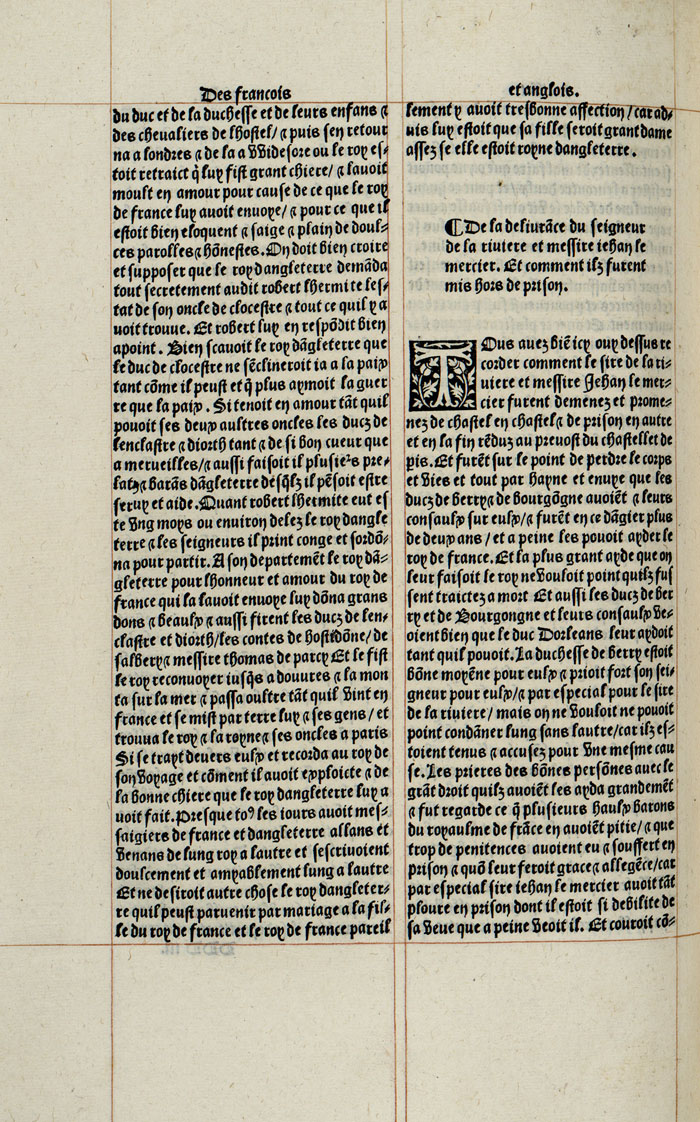 Des francois
du duc et de la duchesse et de leurs enfans ⁊
des cheualiers de lhostel/⁊ puis sen retour
na a londres ⁊ de la a Widesore ou le roy es⸗
toit retraict q̃ luy fist grant chiere/ ⁊ lauoit
moult en amour pour cause de ce que le roy
de france luy auoit enuoye/ ⁊ pour ce que il
estoit bien eloquent ⁊ saige ⁊ plain de doul⸗
ces parolles ⁊ hõnestes. On doit bien croire
et supposer que le roy dangleterre demãda
tout secretement audit robert lhermite les⸗
tat de son oncle de clocestre ⁊ tout ce quil y a
uoit trouue. Et robert luy en respõdit bien
apoint. Bien scauoit le roy dãgleterre que
le duc de clocestre ne sẽclineroit ia a la paix
tant cõme il peust et q̃ plus aymoit la guer
re que la paix. Si tenoit en amour tãt quil
pouoit ses deux aultres oncles les ducz de
lenclastre ⁊ diorth tant ⁊ de si bon cueur que
a merueilles/⁊ aussi faisoit il plusieˢs pre⸗
latz⁊ barãs dãgleterre desq̃lz il pẽsoit estre
seruy et aide. Quant robert lhermite eut es
te vng moys ou enuiron delez le roy dangle
terre ⁊ les seigneurs il print conge et sordõ⸗
na pour partir. A son departemẽt le roy dã⸗
gleterre pour lhonneur et amour du roy de
france qui la lauoit enuoye luy dõna grans
dons ⁊ beaulx ⁊ aussi firent les ducz de len⸗
clastre et diorth/les contes de hostidõne/de
salbery⁊ messire thomas de parcy Et le fist
le roy reconuoyer iusq̃s a douures ⁊ la mon
ta sur la mer ⁊ passa oultre tãt quil vint en
france et se mist par terre luy ⁊ ses gens/ et
trouua le roy ⁊ la royne⁊ ses oncles a paris
Si se trayt deuers eulx et recorda au roy de
son voyage et cõment il auoit exploicte ⁊ de
la bonne chiere que le roy dangleterre luy a
uoit fait. Presque toꝰ les iours auoit mes⸗
saigiers de france et dangleterre allans et
venans de lung roy a lautre et sescriuoient
doulcement et amyablement lung a lautre
Et ne desiroit autre chose le roy dangleter⸗
re quil peust paruenir par mariage a la fil⸗
le du roy de france et le roy de france pareil
et anglois.
lement y auoit tresbonne affection/car ad⸗
uis luy estoit que sa fille seroit grant dame
assez se elle estoit royne dangleterre.
¶De la deliurãce du seigneur
de la riuiere et messire iehan le
mercier. Et comment ilz furent
mis hors de prison.
TOus auez biẽ icy ouy dessus re
corder comment le sire de la ri⸗
uiere et messire Jehan le mer⸗
cier furent demenez et prome⸗
nez de chastel en chastel⁊ de prison en autre
et en la fin rẽduz au preuost du chastellet de
pis. Et furẽt sur le point de perdre le corps
et vies et tout par hayne et enuye que les
ducz de berry⁊ de bourgõgne auoiẽt ⁊ leurs
consaulx sur eulx/⁊ furẽt en ce dãgier plus
de deux ans/ et a peine les pouoit ayder le
roy de france. Et la plus grant ayde que on
leur faisoit le roy ne vouloit point quilz fus
sent traictez a mort Et aussi les ducz de ber
ry et de Bourgongne et leurs consaulx ve⸗
oient bien que le duc Dorleans leur aydoit
tant quil pouoit. La duchesse de berry estoit
bõne moyẽne pour eulx ⁊ prioit fort son sei⸗
gneur pour eulx/⁊ par especial pour le sire
de la riuiere/ mais on ne vouloit ne pouoit
point condãner lung sans lautre/car ilz es⸗
toient tenus ⁊ accusez pour vne mesme cau
se. Les prieres des bõnes persõnes auec le
grãt droit quilz auoiẽt les ayda grandemẽt
⁊ fut regarde ce q̃ plusieurs haulx barons
du royaulme de frãce en auoiẽt pitie/ ⁊ que
trop de penitences auoient eu ⁊ souffert en
prison ⁊ quõ leur feroit grace⁊ allegẽce/car
par especial sire iehan le mercier auoit tãt
ploure en prison dont il estoit si debilite de
sa veue que a peine veoit il. Et couroit cõ⸗